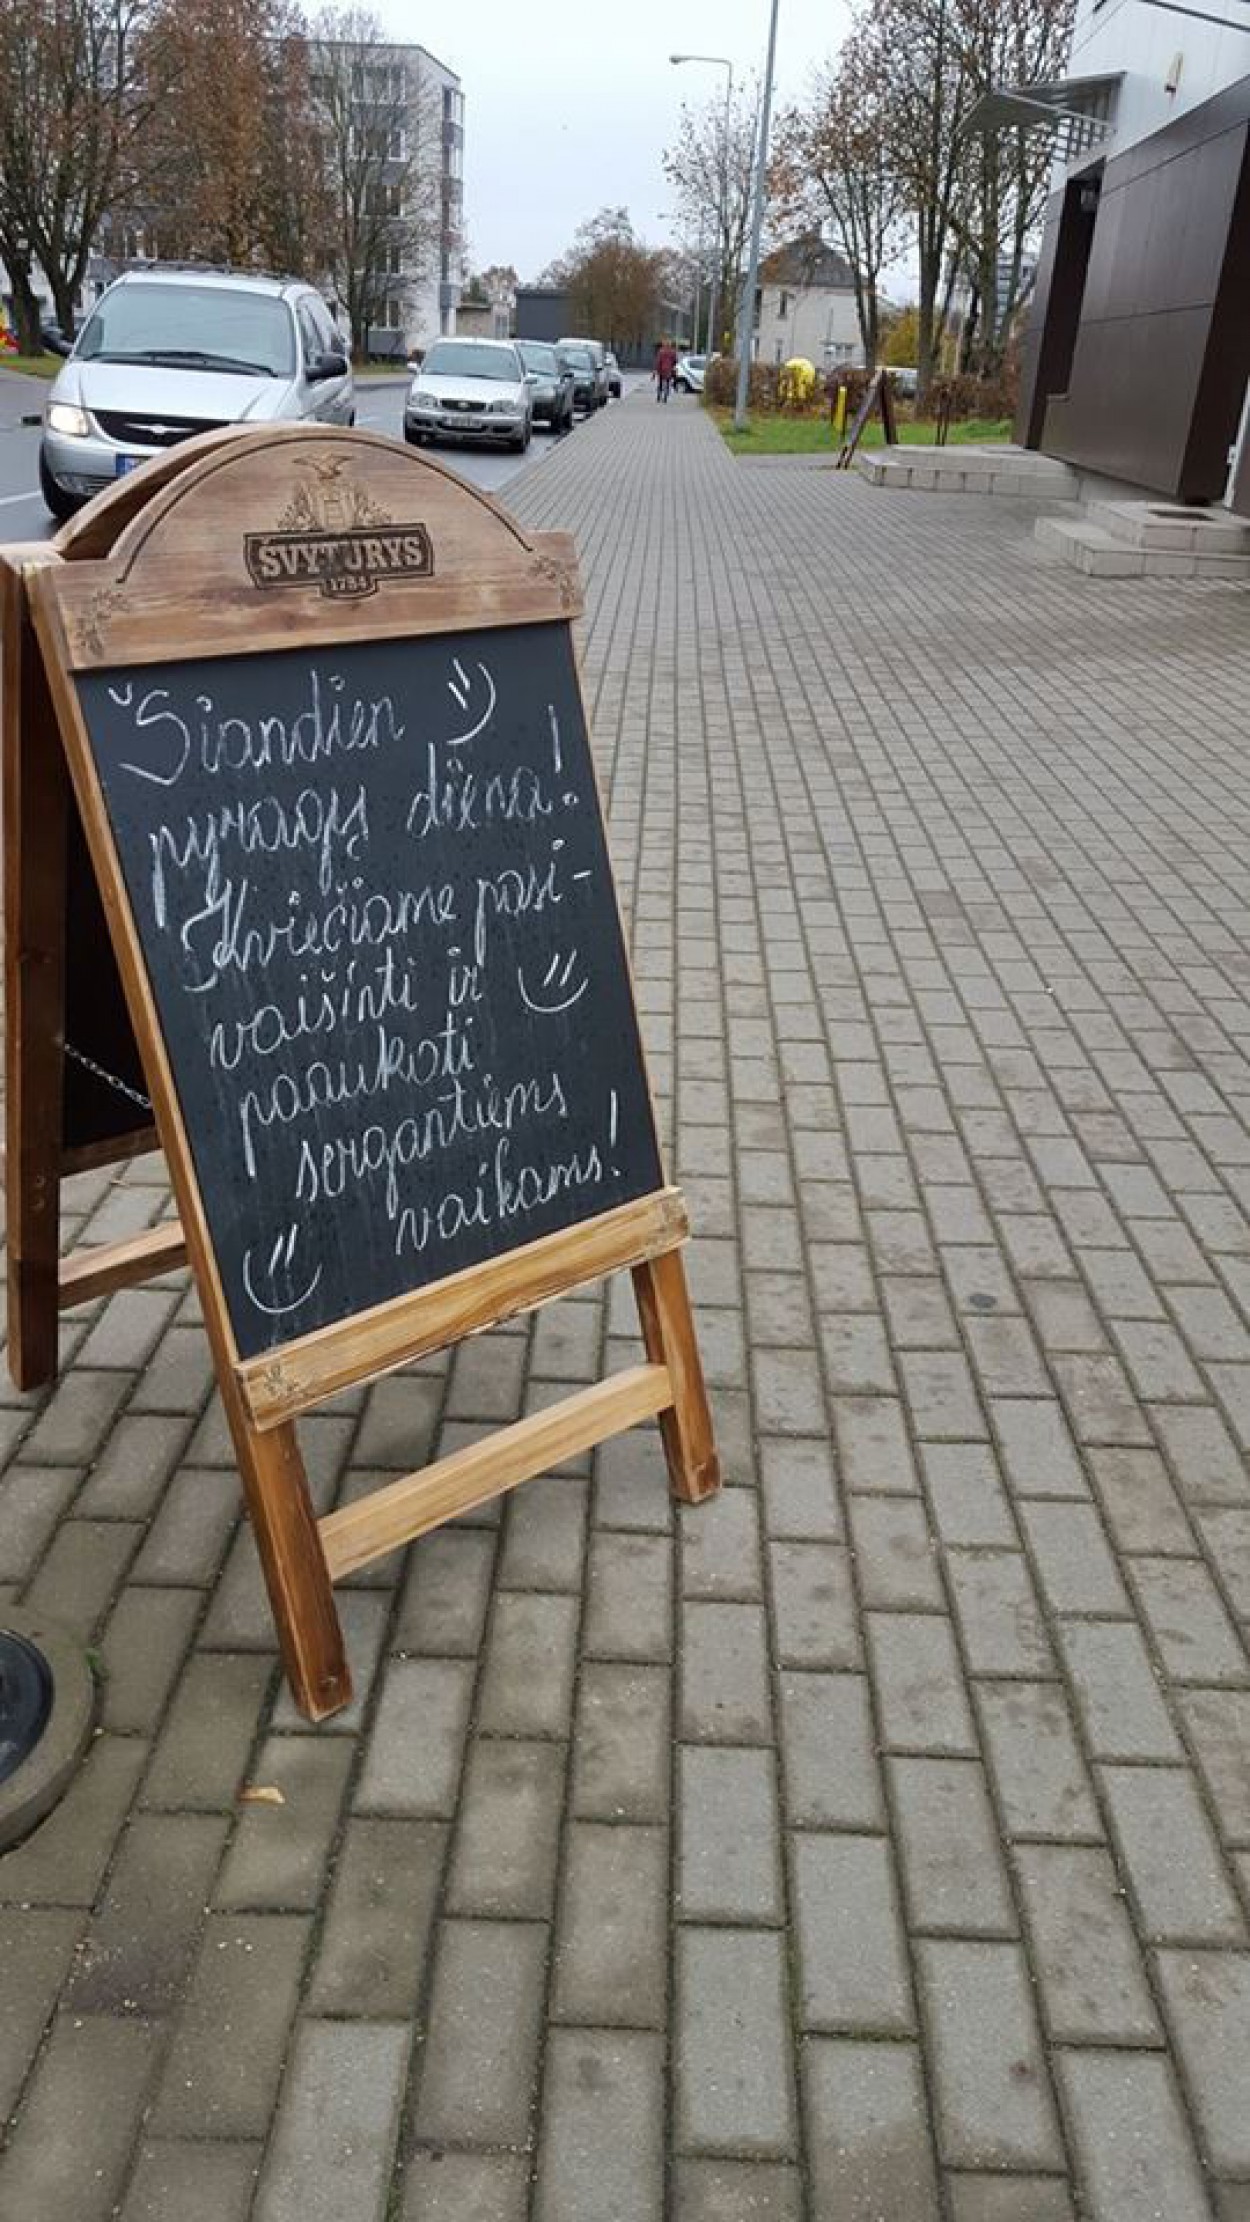 ŠVYTURYS
1784
Šiandien
pyragų diena!
Kviečiame pasi-
vaišinti ir
paaukoti
sergantiems
vaikams!